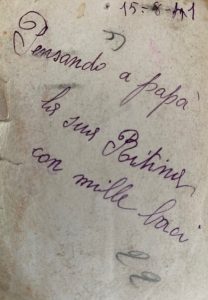 15-8-41
Pensando a papà
la sua Ritina
con mille baci